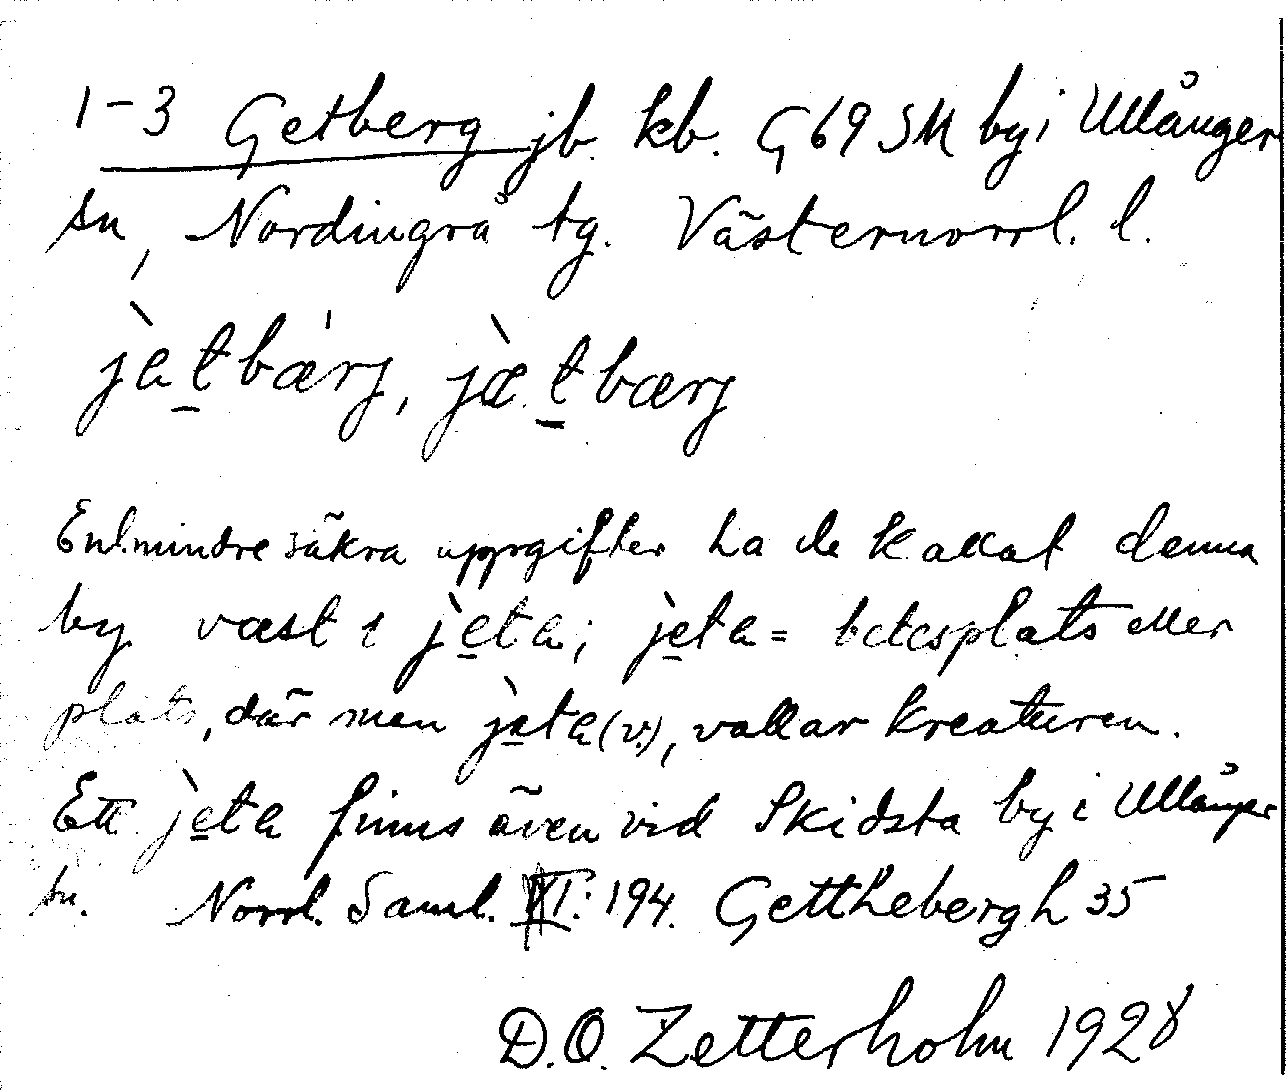 1-3 Getberg jb. kb. G69 SM by i Ullånger
sn, Nordingrå tg. Västernorrl. l.
jèt̲bǽrj, jæ̀t̲bærj
Enl. mindre säkra uppgifter ha de kallat denna
by væst i jèta; jèta = betesplats eller
plats, där man jèta (v.), vallar kreaturen.
Ett jèta finns även vid Skidsta by i Ullånger
sn. Norrl. Saml. : 194. Getthebergh 35
D.O. Zetterholm 1928